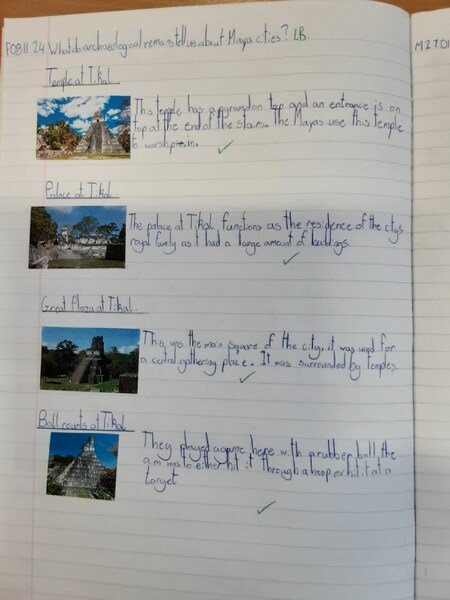 F08.11.24 What do archaeological remains tell us about Maya cities? LB.
M 27.01
Temple at Tikal
This temple has a pyramid on top and an entrance is on
top at the end of the stairs. The Mayas use this temple
to worship in.
Palace at Tikal
The palace at Tikal functions as the residence of the city's
royal family as it had a large amount of buildings.
Great Plaza at Tikal.
This was the main square of the city, it was used for
a central gathering place. It was surrounded by temples.
Ball courts at Tikal
They played a game here with a rubber ball, the
aim was to either hit it through a hoop or hit it at a
target